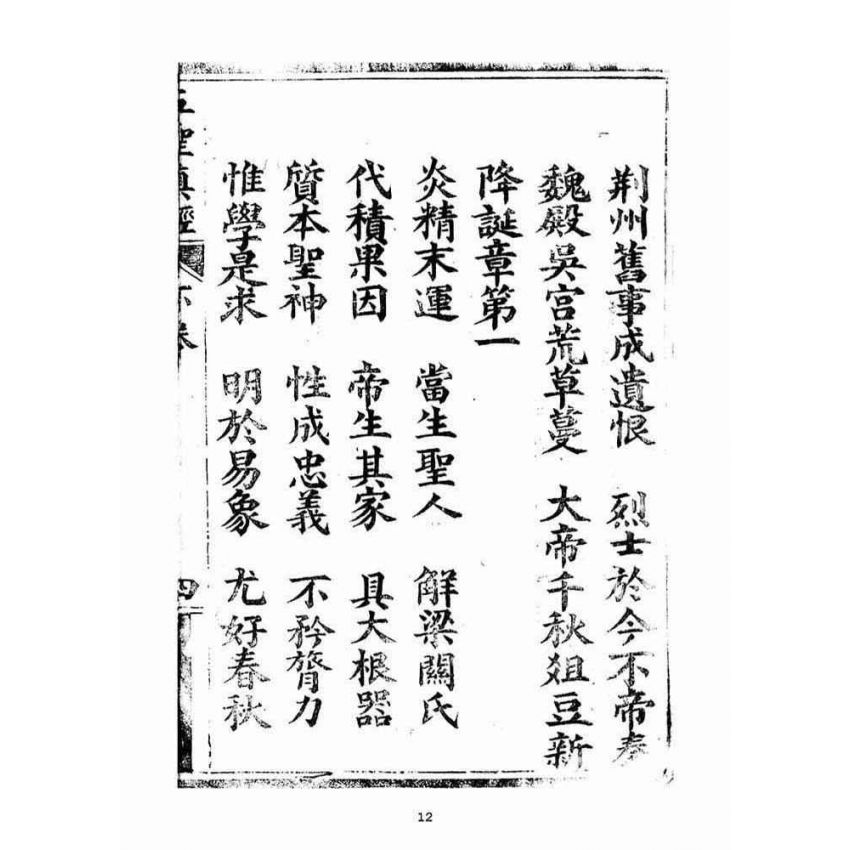 荆州舊事成遺恨　烈士於今不帝秦
魏殿吳宮荒草蔓　大帝千秋俎豆新
降誕章第一
炎精末運　當生聖人　解梁關氏
代積果因　帝生其家　具大根器
質本聖神　性成忠義　不矜膂力
惟學是求　明於易象　尤好春秋
五聖真經　下卷　四
12